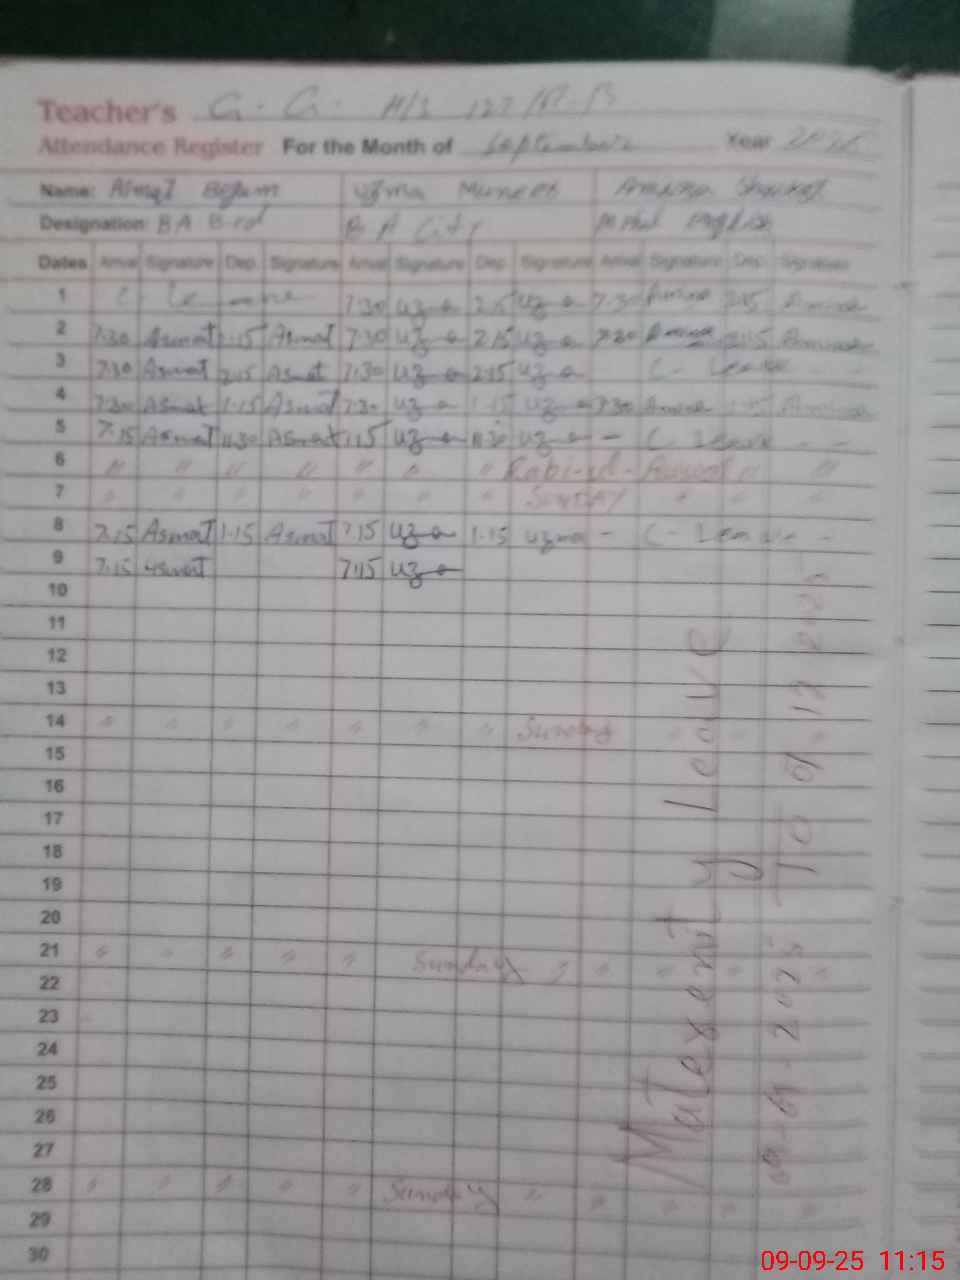 Teacher's G. G. H/S
Attendance Register For the Month of September Year 2025
Name: Asmat Begum Uzma Muneeb Amina Shaukat
Designation: BA B-ed B A
Dates Arrival Signature Dep. Signature Arrival Signature Dep. Signature Arrival Signature Dep. Signature
1 C- Leave 7:30 Uzma 2:15 Uzma 7:30 Amina 2:15 Amina
2 7:30 Asmat 1:15 Asmat 7:30 Uzma 2:15 Uzma 7:30 Amina 2:15 Amina
3 7:30 Asmat 2:15 Asmat 7:30 Uzma 2:15 Uzma C- Leave - -
4 7:30 Asmat 1:15 Asmat 7:30 Uzma 1:15 Uzma 7:30 Amina Amina
5 7:15 Asmat 11:30 Asmat 7:15 Uzma 11:30 Uzma - C- Leave - -
6 " " " " " " " " "
7 " " " " " " " Sunday " " "
8 7:15 Asmat 1:15 Asmat 7:15 Uzma 1:15 Uzma - C- Leave -
9 7:15 Asmat 7:15 Uzma
10
11
12
13
14 " " " " " " " Sunday " " "
15
16
17
18
19
20
21 " " " " " Sunday " " " " "
22
23
24
25
26
27
28 " " " " " Sunday " " " " "
29
30
Maternity Leave
09-09-2025 To
09-09-25 11:15